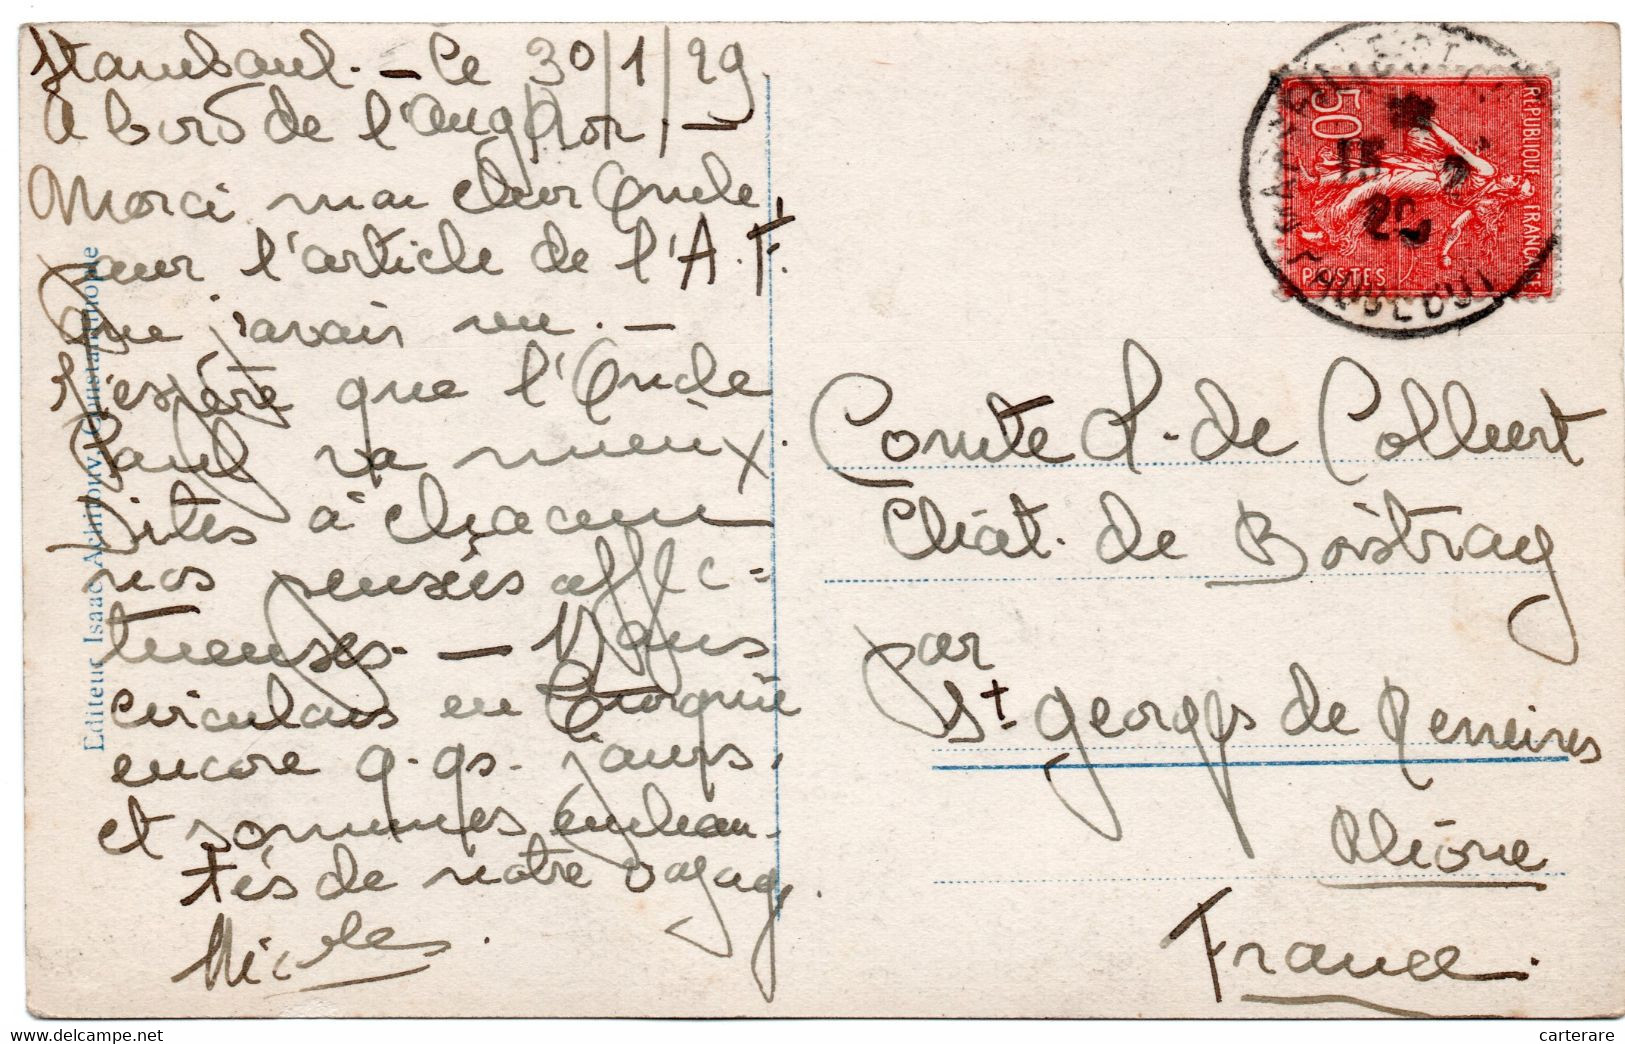 Stamboul. - Le 30/1/29
A bord de l'Angkor. -
Merci mon cher Oncle
pour l'article de l'A.F.
que j'avais vu. -
J'espère que l'Oncle
Paul va mieux.
Dites à chacun
nos pensées affec=
tueuses. - Nous
circulons en Turquie
encore q.qs. jours,
et sommes enchan-
tés de notre voyage.
Nicolas.
Editeur Isaac Achitouv, Constantinople
REPUBLIQUE FRANÇAISE
50
POSTES
15
Comte L. de Colbert
Chât. de Boistray
par
St Georges de Reneins
Rhône
France.
carterare
www.delcampe.net